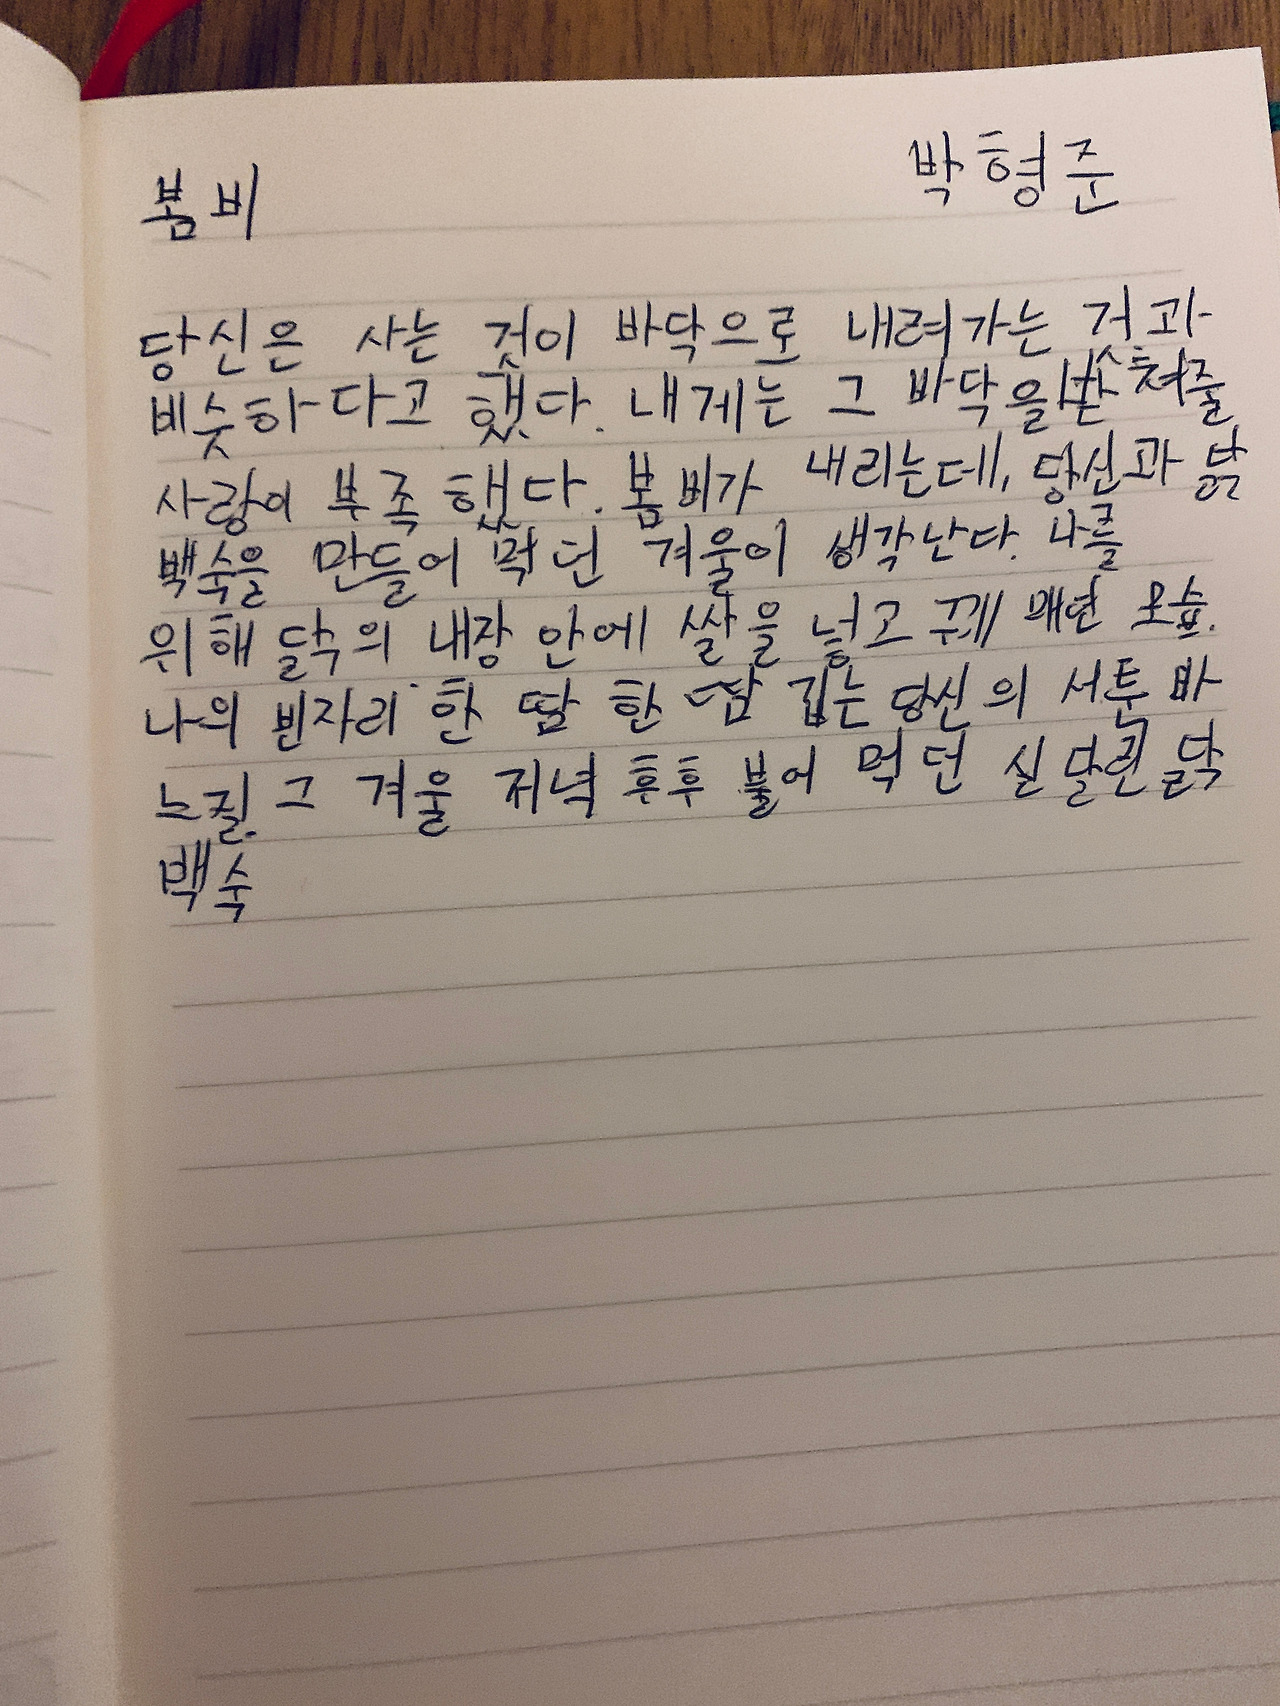 봄비 박형준
당신은 사는 것이 바닥으로 내려가는 거과
비슷하다고 했다. 내게는 그 바닥을 받쳐줄
사랑이 부족했다. 봄비가 내리는데, 당신과 닭
백숙을 만들어 먹던 겨울이 생각난다. 나를
위해 닭의 내장 안에 쌀을 넣고 꿰매던 모습.
나의 빈자리 한 땀 한 땀 깁는 당신의 서툰 바
느질. 그 겨울 저녁 후후 불어 먹던 실 달린 닭
백숙